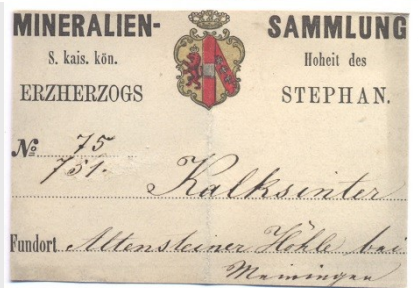 MINERALIEN- SAMMLUNG
S. kais. kön. Hoheit des
ERZHERZOGS STEPHAN.
No 75
751.
Kalksinter
Fundort Altensteiner Höhle bei
Meiningen